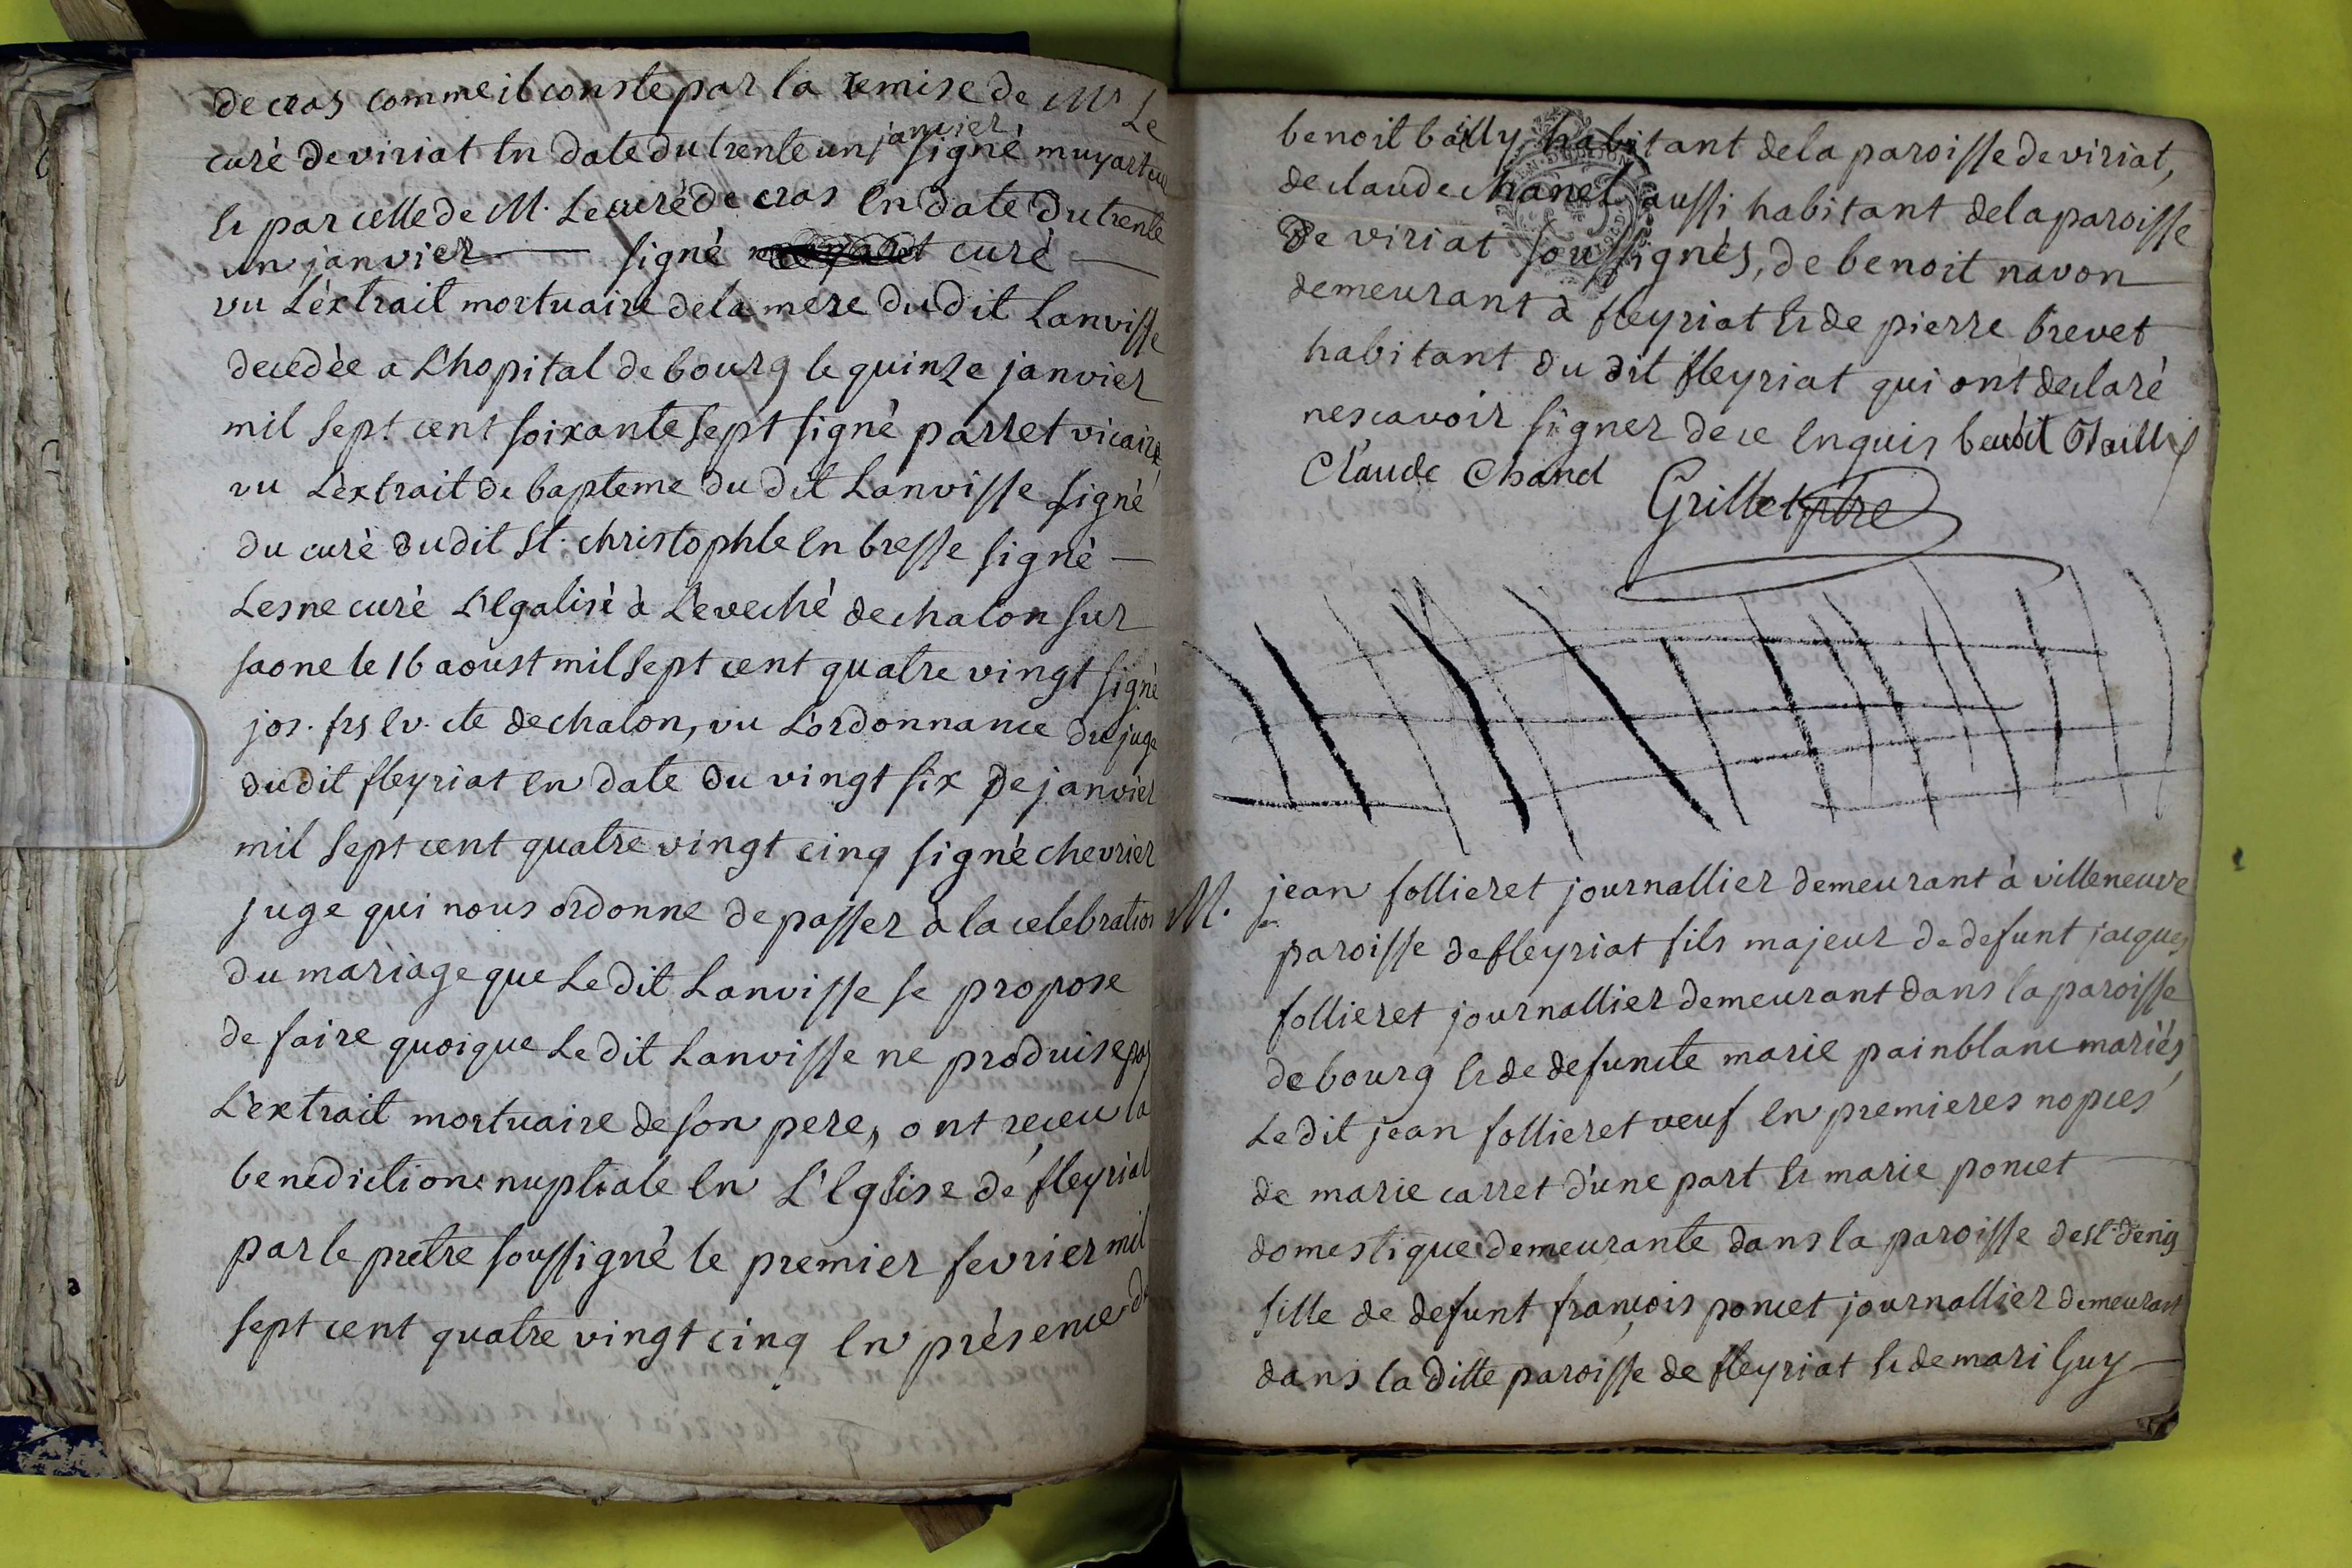 de cras comme il conste par la remise de Mr Le
curé de viriat en date du trente un janvier signé muyart cu
et par celle de M. Le curé de cras en date du trente
un janvier signé curé
vu L'éxtrait mortuaire de la mere du dit Lanvisse
decedée a L'hopital de bourg le quinze janvier
mil sept cent soixante sept signé parret vicaire
vu L'extrait de bapteme du dit Lanvisse signé
du curé dudit St. christophle en bresse signé
Lesne curé L'égalisé à L'eveché de chalon sur
saone le 16 aoust mil sept cent quatre vingt signé
jos. frs ev. cte de chalon, vu L'ordonnance du juge
dudit fleyriat en date du vingt six de janvier
mil sept cent quatre vingt cinq signé chevrier
juge qui nous ordonne de passer à la celebration
du mariage que Le dit Lanvisse se propose
de faire quoique Le dit Lanvisse ne produise pas
L'extrait mortuaire de son pere, ont receu la
benediction nuptiale en L'Eglise de fleyriat
par le pretre soussigné le premier fevrier mil
sept cent quatre vingt cinq en présence de
benoit bailly habitant de la paroisse de viriat,
de claude chanel aussi habitant de la paroisse
de viriat soussignés, de benoit navon
demeurant à fleyriat et de pierre brevet
habitant du dit fleyriat qui ont déclaré
ne scavoir signer de ce enquis benoit Bailly
Claude Chanel Grillet ptre
M. jean follieret journallier demeurant à villeneuve
paroisse de fleyriat fils majeur de defunt jacques
follieret journallier demeurant dans la paroisse
de bourg et de defuncte marie painblanc mariés,
Le dit jean follieret veuf en premieres nopces
de marie carret d'une part et marie poncet
domestique demeurante dans la paroisse de st. denis
fille de defunt françois poncet journallier demeurant
dans la ditte paroisse de fleyriat et de mari Guy